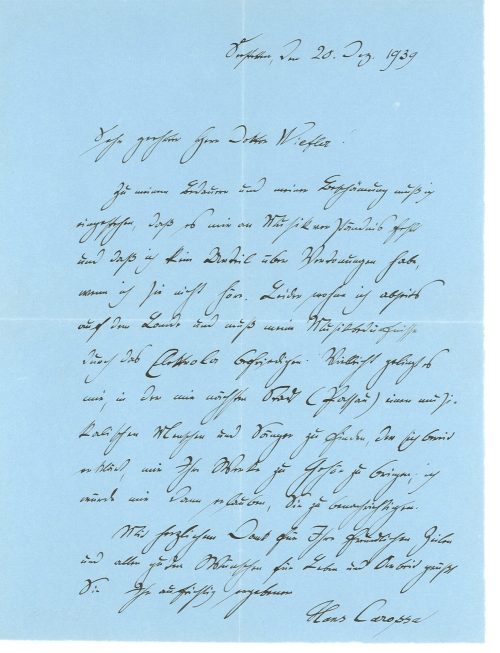 Seestetten, den 20. Dez. 1939
Sehr geehrter Herr Doktor Wiesler!
Zu meinem Bedauern und meiner Beschämung muß ich
eingestehen, daß es mir an Musikverständnis fehlt
und daß ich kein Urteil über Vertonungen habe,
wenn ich sie nicht höre. Leider wohne ich abseits
auf dem Lande und muß mein Musikbedürfnis
durch das Elektrola befriedigen. Vielleicht gelingt es
mir, in der mir nächsten Stadt (Passau) einen musi-
kalischen Menschen und Sänger zu finden, der sich bereit
erklärt, mir Ihre Werke zu Gehör zu bringen; ich
würde mir dann erlauben, Sie zu benachrichtigen.
Mit herzlichem Dank für Ihre freundlichen Zeilen
und allen guten Wünschen für Leben und Arbeit grüßt
Sie Ihr aufrichtig ergebener
Hans Carossa